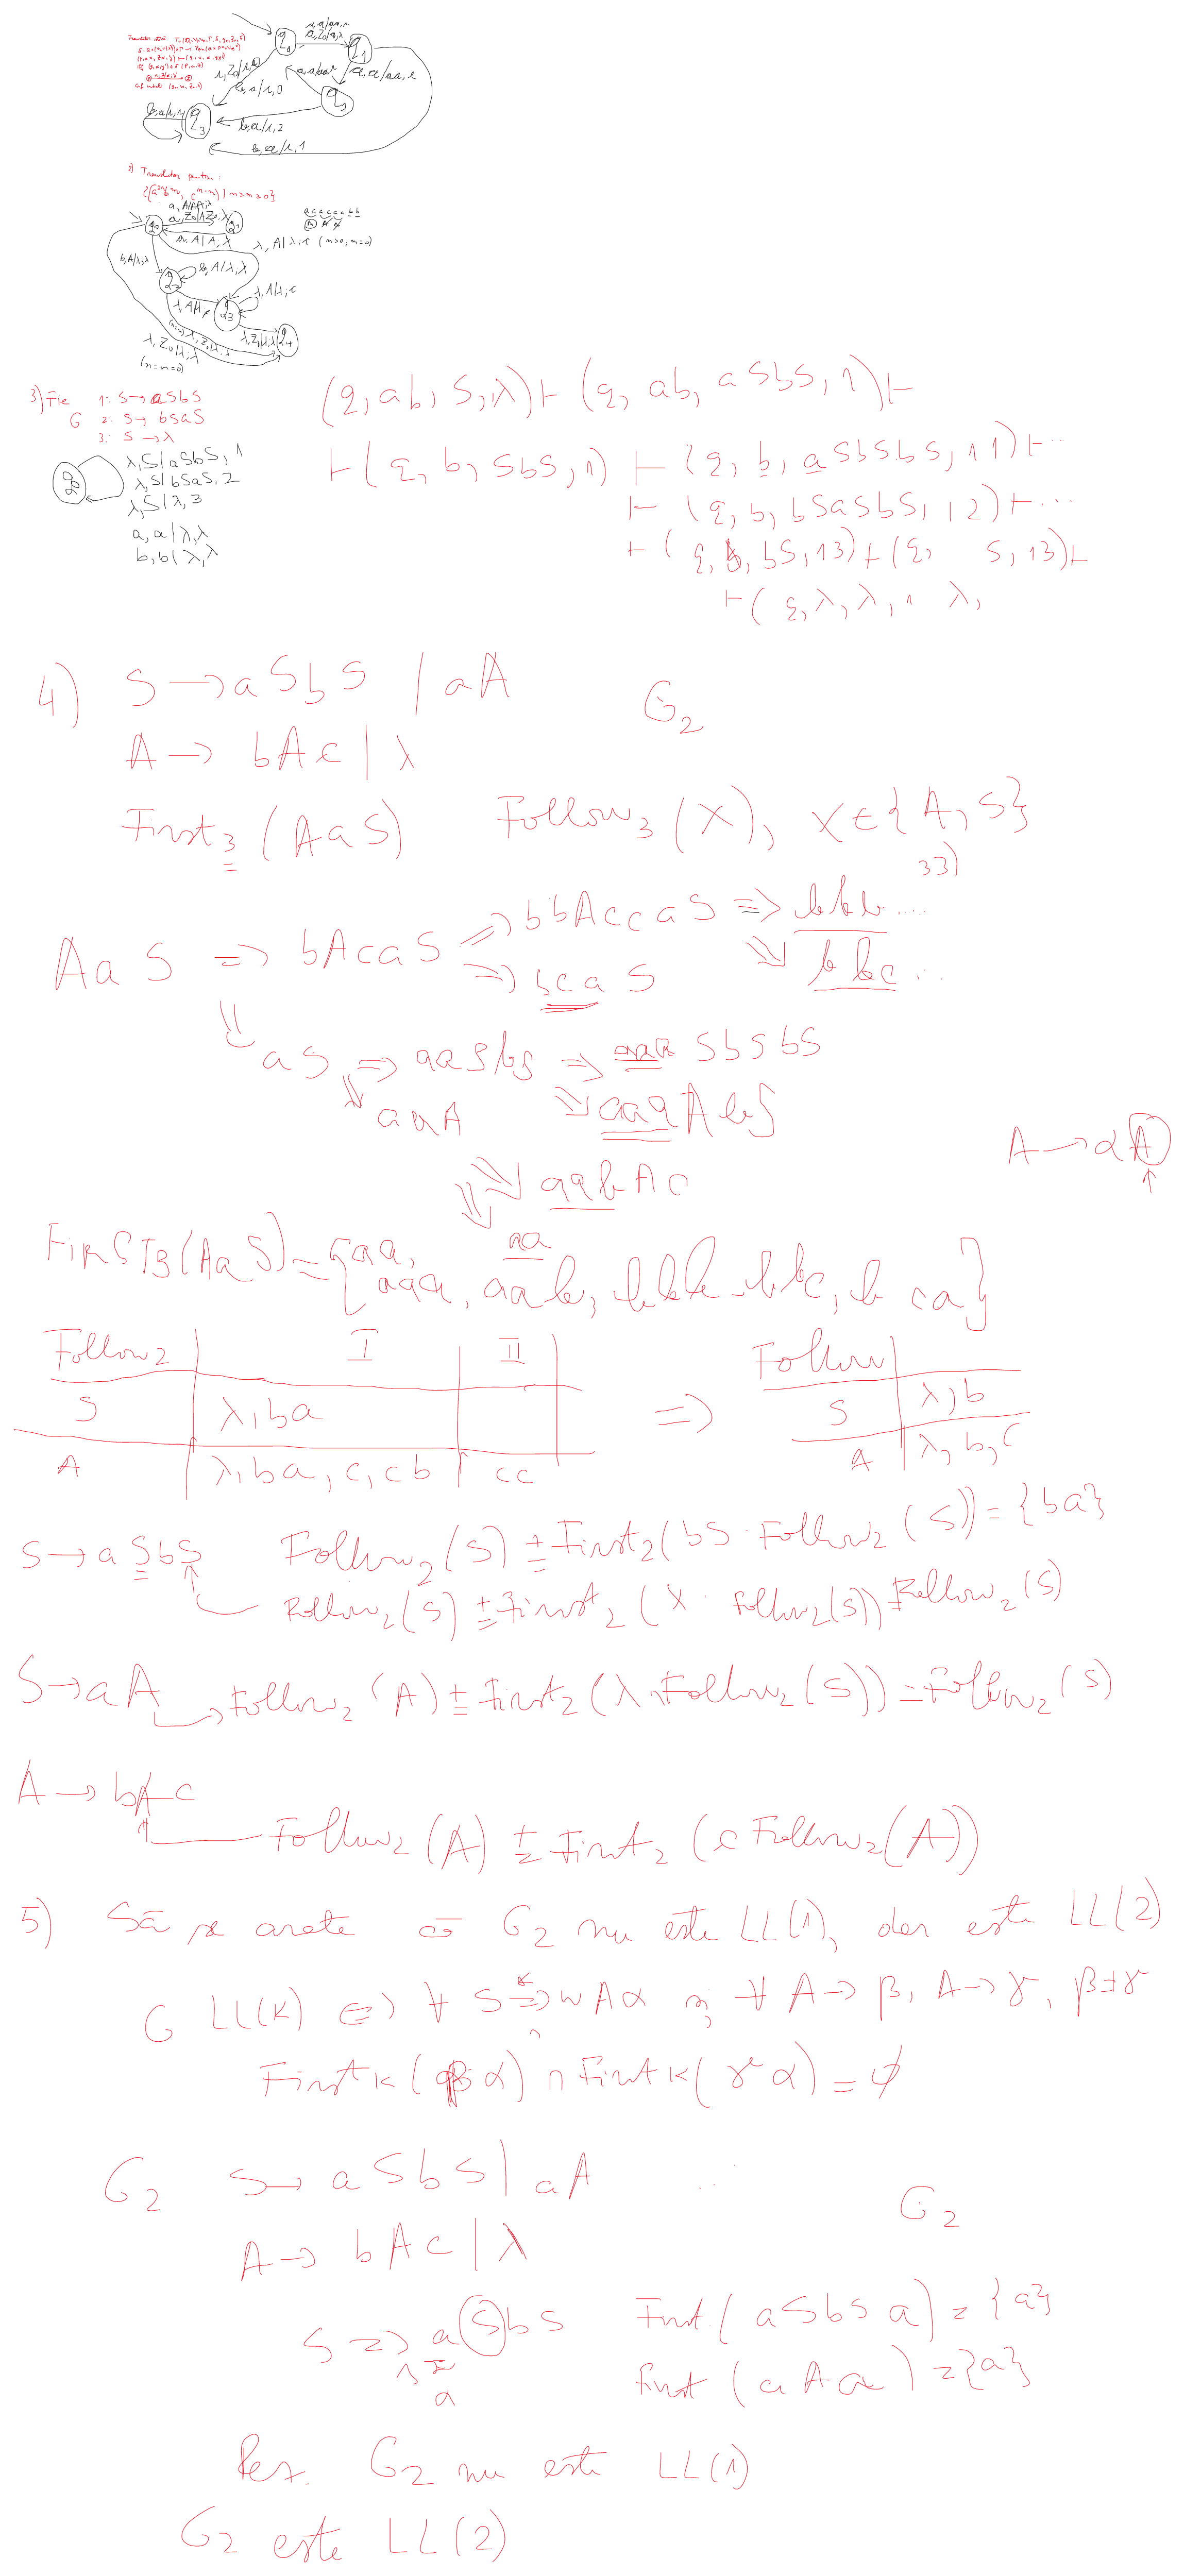 q0
q1
q2
q3
a, a/aa, λ
b, a/λ, 0
b, a/λ, 2
b, a/λ, 1
2) Translator pentru:
{(a²ⁿbᵐ, cⁿ⁻ᵐ) | n≥m≥0}
a, Z0/AZ0, λ
a, A/A, λ
λ, A/λ, c (n>0, m=0)
b, A/λ, λ
b, A/λ, λ
λ, A/λ, c
λ, Z0/λ, λ
λ, Z0/λ, λ
(n=m=0)
3) Fie 1: S→aSbS
G 2: S→bSaS
3: S→λ
λ, S/aSbS, 1
λ, S/bSaS, 2
λ, S/λ, 3
a, a/λ, λ
b, b/λ, λ
(q, ab, S, λ) ⊢ (q, ab, aSbS, 1) ⊢
⊢ (q, b, SbS, 1) ⊢ (q, b, aSbSbS, 11) ⊢ ...
⊢ (q, b, bSaSbS, 12) ⊢ ...
⊢ (q, b, bS, 13) ⊢ (q, S, 13) ⊢
⊢ (q, λ, λ, 1 λ,
4) S → aSbS | aA G2
A → bAc | λ
First3 (AaS) Follow3 (X), X∈{A,S}
33)
AaS ⇒ bAcaS ⇒ bbAccaS ⇒ bbb...
⇒ bcaS ⇒ bbc...
⇒ aS ⇒ aaSbS ⇒ aaaSbSbS
⇒ aaA ⇒ aaaAbS
A → αA
⇒ aabAc
⇒ aa
FIRST3(AaS) = {aa, aaa, aab, bbb, bbc, bca}
Follow2 | I | II ⇒ Follow
S | λ, ba S | λ, b
A | λ, ba, c, cb | cc A | λ, b, c
S → aSbS Follow2(S) ±= First2(bS·Follow2(S)) = {ba}
Follow2(S) ±= First2(λ·Follow2(S)) = Follow2(S)
S → aA → Follow2(A) ±= First2(λ·Follow2(S)) = Follow2(S)
A → bAc
Follow2(A) ±= First2(c Follow2(A))
5) Să se arate că G2 nu este LL(1), dar este LL(2)
G LL(K) ⇔ ∀ S ⇒* wAα și ∀ A → β, A → γ, β≠γ
FirstK(βα) ∩ FirstK(γα) = ∅
G2 S → aSbS | aA
G2
A → bAc | λ
S ⇒ aSbS First(aSbSα) = {a}
α First(aAα) = {a}
Rez. G2 nu este LL(1)
G2 este LL(2)